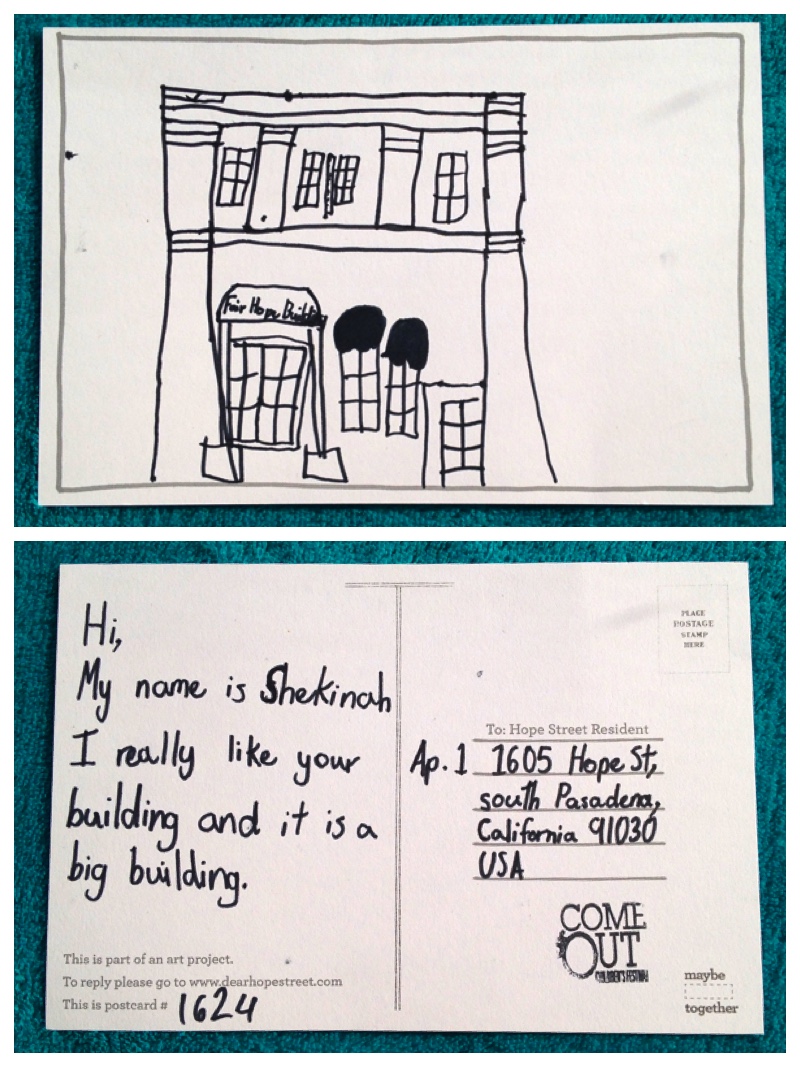 Fair Hope Building
Hi,
My name is Shekinah
I really like your
building and it is a
big building.
This is part of an art project.
To reply please go to www.dearhopestreet.com
This is postcard # 1624
PLACE
POSTAGE
STAMP
HERE
To: Hope Street Resident
Ap. 1 1605 Hope St,
south Pasadena,
California 91030
USA
COME
OUT
CHILDREN'S FESTIVAL
maybe
together